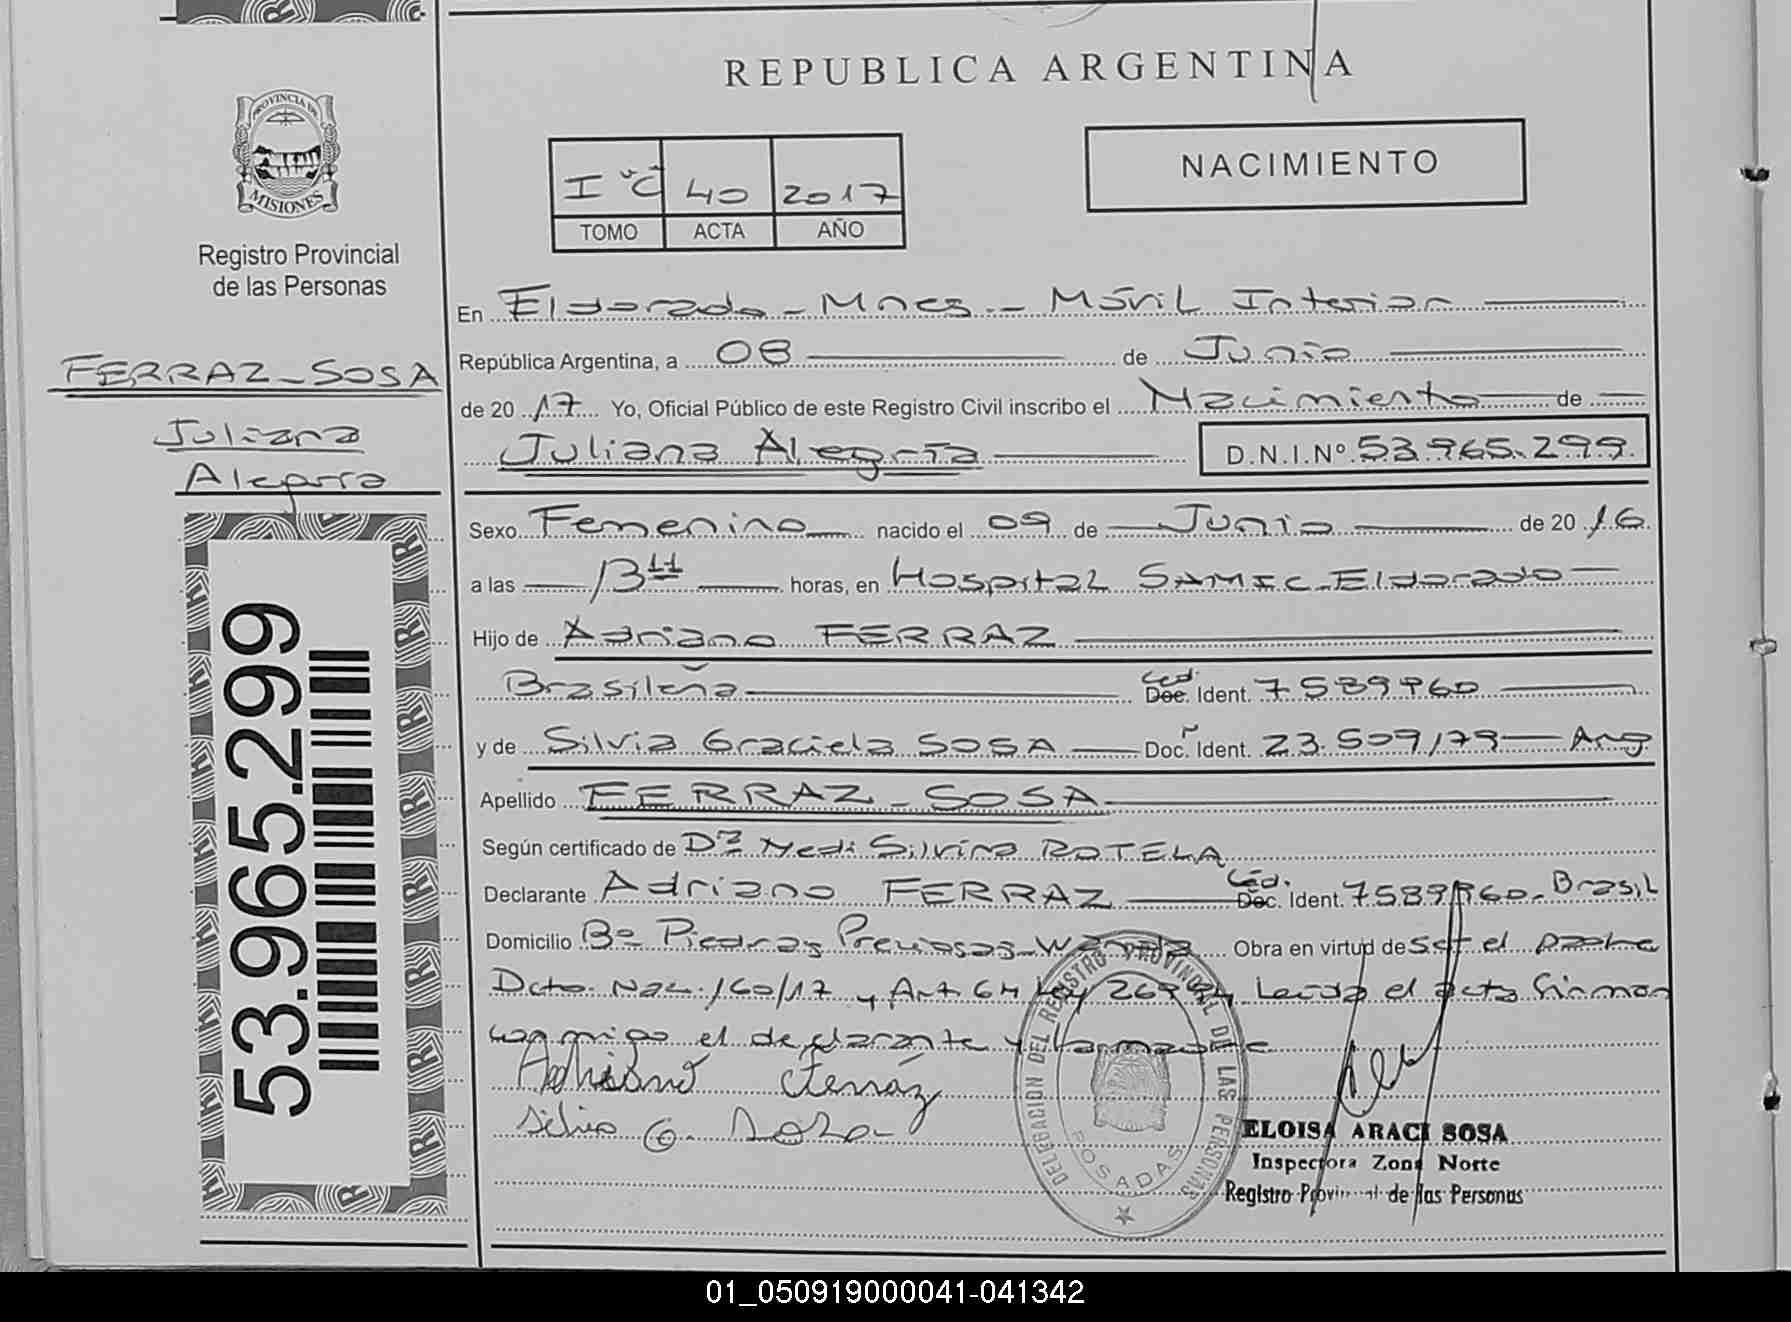 REPUBLICA ARGENTINA
PROVINCIA DE
MISIONES
Registro Provincial
de las Personas
NACIMIENTO
I "C" 40 2017
TOMO ACTA AÑO
En Eldorado - Mnes - Móvil Interior
República Argentina, a 08 de Junio
de 20 17 Yo, Oficial Público de este Registro Civil inscribo el Nacimiento de
Juliana Alegría D.N.I.Nº 53.965.299
FERRAZ - SOSA
Juliana
Alegría
Sexo Femenino nacido el 09 de Junio de 20 16
a las 13 11 horas, en Hospital SAMIC - Eldorado
Hijo de Adriano FERRAZ
Brasileña Céd. Doc. Ident. 7589960
y de Silvia Graciela SOSA Doc. Ident. 23.509.179 Arg
Apellido FERRAZ - SOSA
Según certificado de Dra Nedi Silvina ROTELA
Declarante Adriano FERRAZ Céd. Doc. Ident. 7589960 - Brasil
Domicilio Bº Piedras Preciosas - Wanda Obra en virtud de Sol el padre
Dcto. Nac. 160/17 y Art 64 Ley Leída el acta firman
conmigo el declarante y
Adriano Ferraz
Silvia G. Sosa
DELEGACION DEL REGISTRO PROVINCIAL DE LAS PERSONAS
POSADAS
ELOISA ARACI SOSA
Inspectora Zona Norte
Registro Provincial de las Personas
53.965.299
01_050919000041-041342